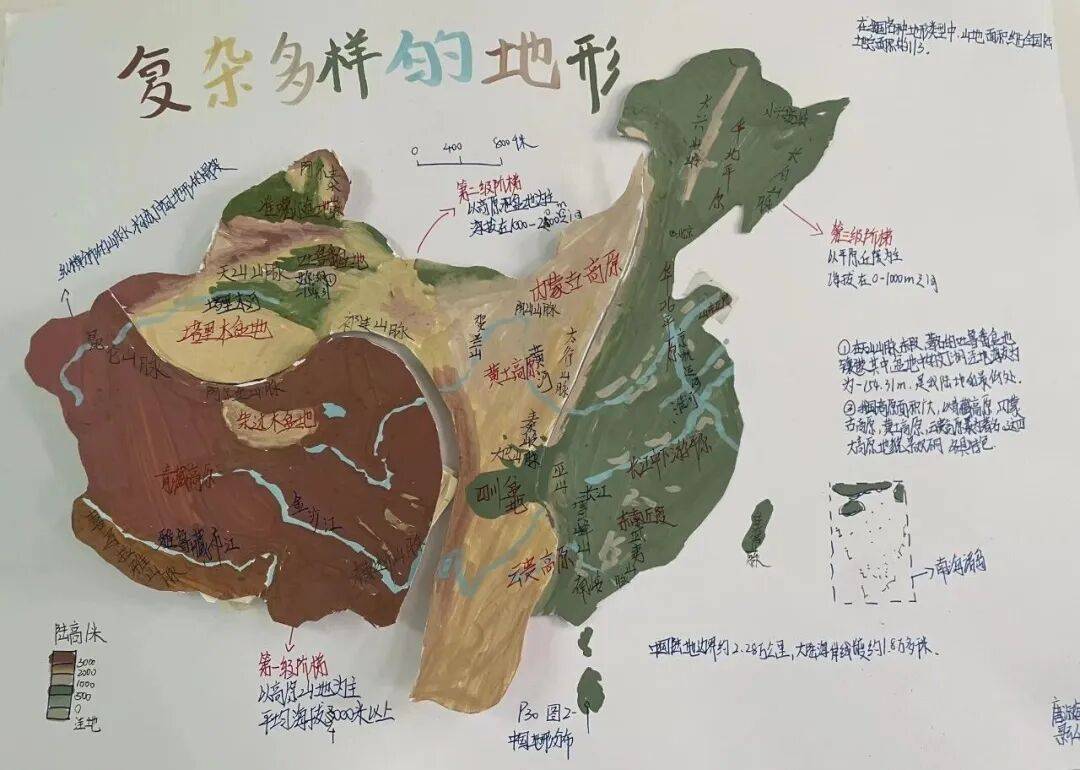 复杂多样的地形
在我国各种地形类型中,山地面积约占全国陆
地总面积的1/3。
0 400 800千米
第一级阶梯
以高原和盆地为主
海拔在1000-2000m之间
阿尔泰
准噶尔盆地
天山山脉
吐鲁番盆地
-154.31
塔里木河
塔里木盆地
昆仑山脉
祁连山脉
柴达木盆地
青藏高原
金沙江
雅鲁藏布江
横断山脉
内蒙古高原
阴山山脉
贺兰山
黄土高原
黄河
太行山脉
秦岭
大巴山脉
巫山
四川盆地
云贵高原
长江
长江中下游平原
东南丘陵
武夷山脉
南岭
大兴安岭
华北平原
小兴安岭
长白山脉
北京
华北平原
京杭运河
淮河
台湾山脉
第三级阶梯
以平原丘陵为主
海拔在0-1000m之间
①在天山山脉东段,
盆地中的艾丁湖洼地海拔约
为-154.31m,是我国陆地的最低处。
②我国高原面积广大,以青藏高原,内蒙
古高原,黄土高原,云贵高原最为著名,这四
大高原地貌
南海诸岛
中国陆地边界约2.28万公里,大陆海岸线约1.8万多
第一级阶梯
以高原山地为主
平均海拔4000米以上
P30 图2-
中国地形分布
陆高/米
3000
2000
1000
500
0
洼地